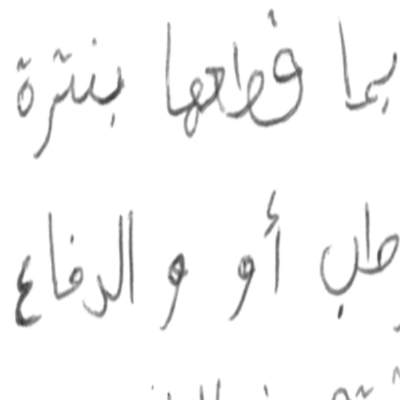 بما قطعها بنترة
طب أو والدفاع